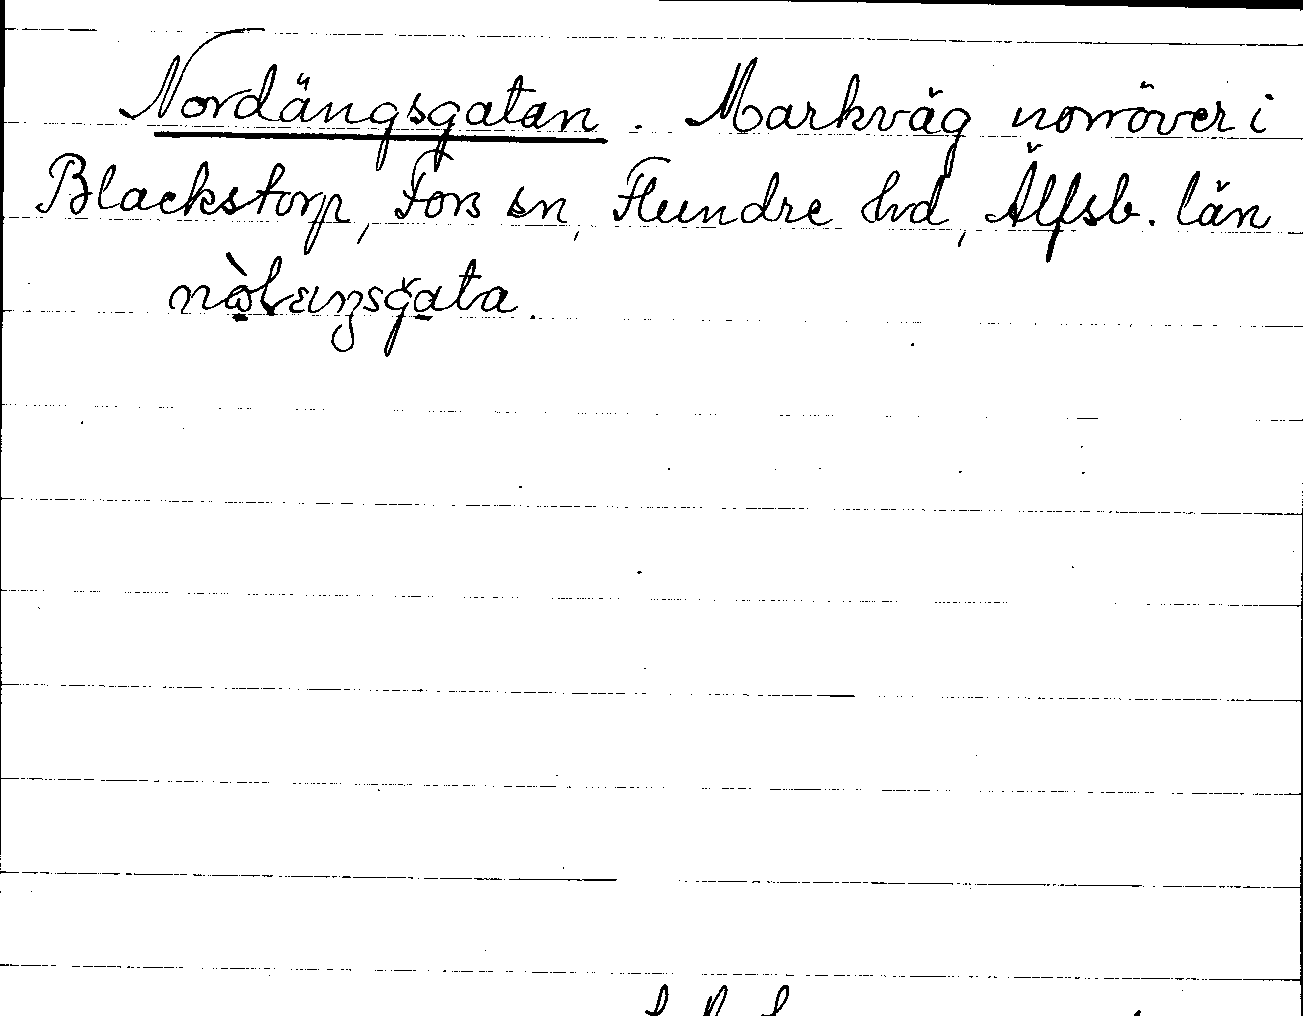 Nordängsgatan. Markväg norröver i
Blackstorp, Fors sn, Flundre hd, Älfsb. län